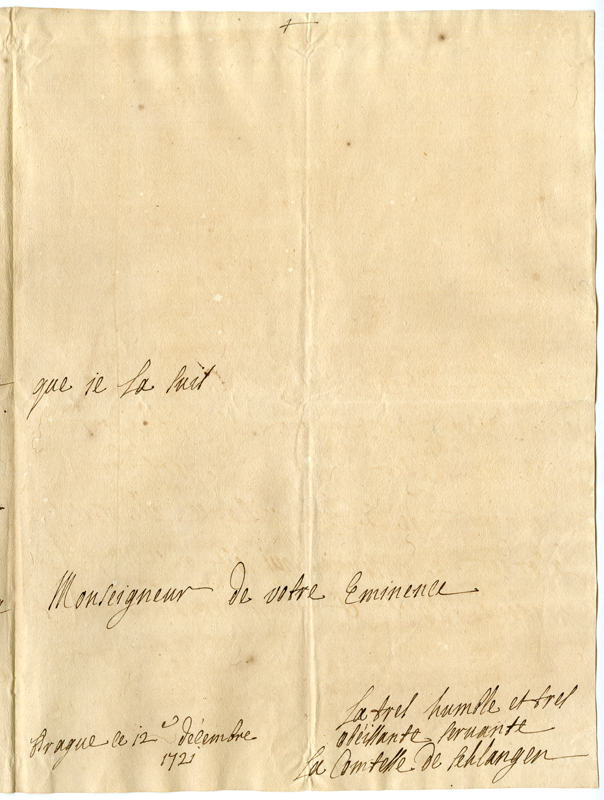 que je la suit
Monseigneur de votre Eminence
la tres humble et tres
obeissante servante
La Comtesse de Schlangen
Prague ce 12e décembre
1721